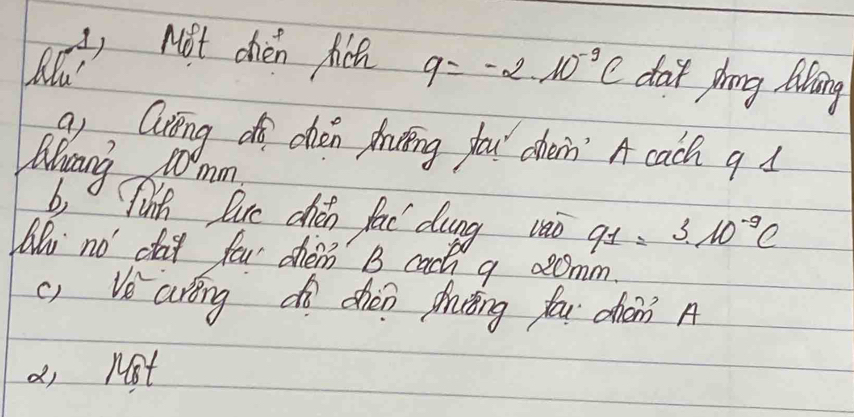 1, Một điện tích q = -2.10⁻⁹C đặt trong không
khí
a) Cường độ điện trường tại điểm A cách q 1
khoảng 10 mm.
b, Tính lực điện tác dụng vào q1 = 3.10⁻⁹C
khi nó đặt tại điểm B cách q 20mm.
c) Vẽ cường độ điện trường tại điểm A
2, Một